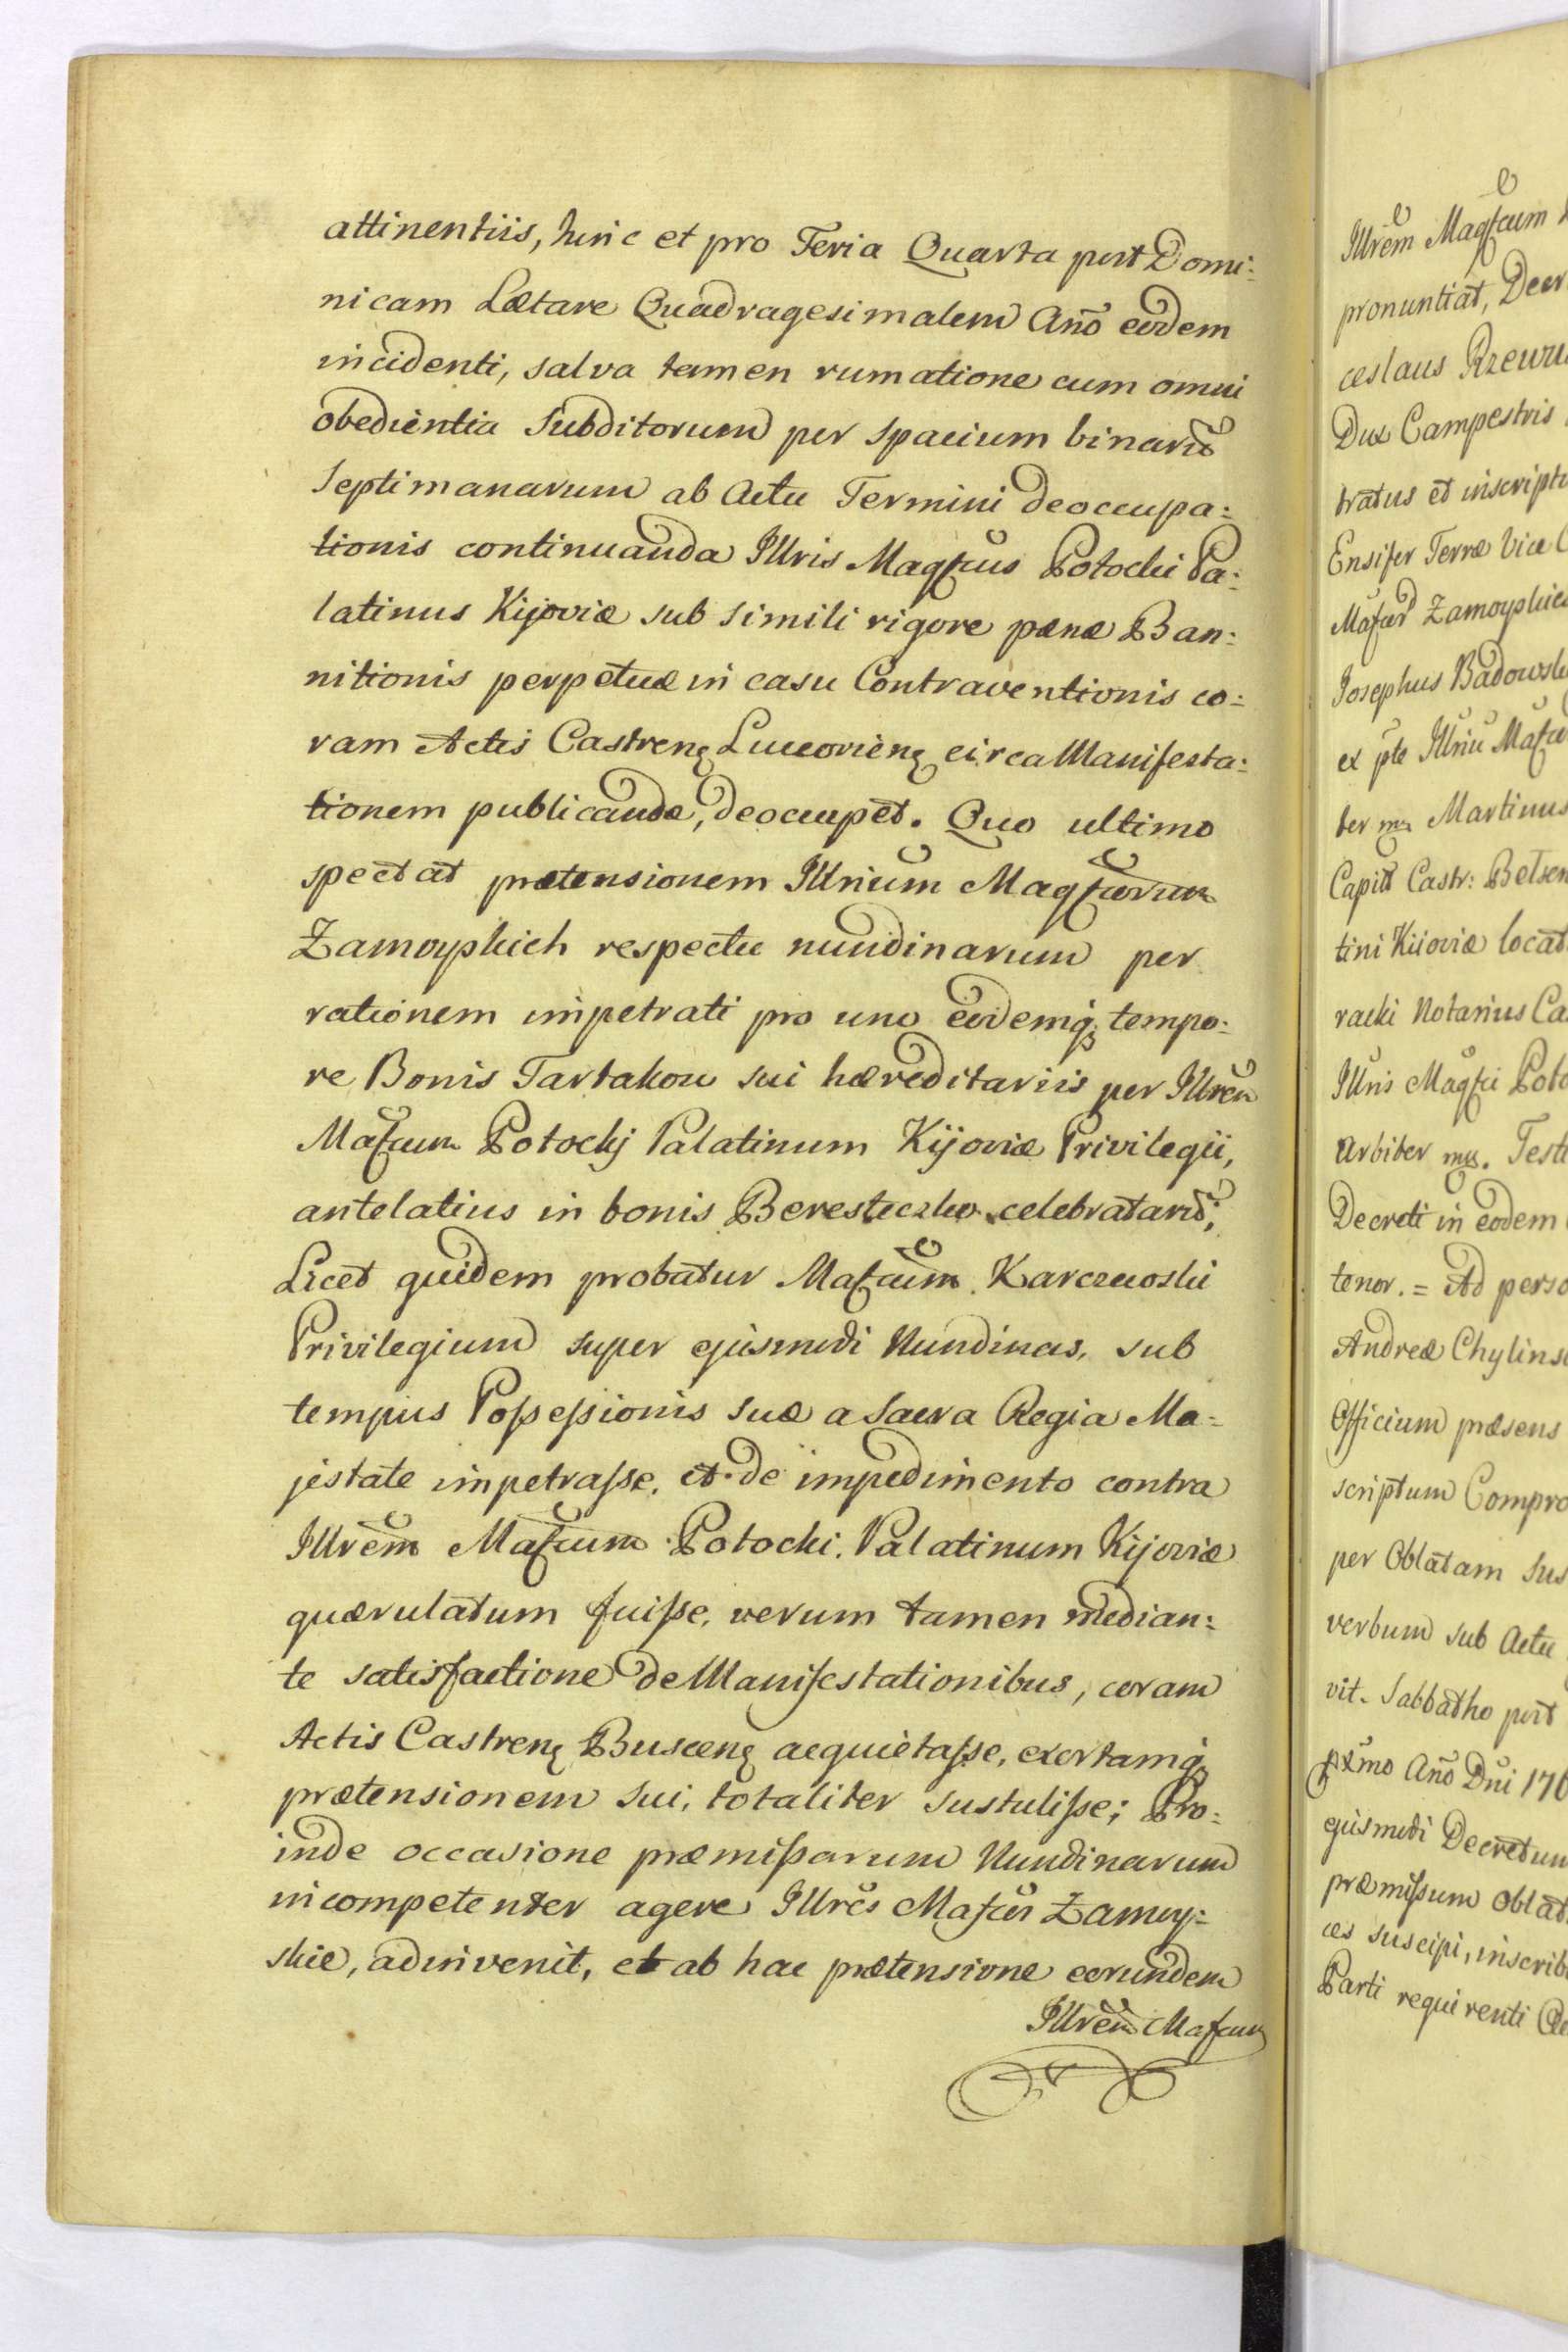 attinentiis, hinc et pro Feria Quarta post Domi:
nicam Lætare Quadragesimalem Año eodem
incidenti, salva tamen rumatione cum omni
obedientia Subditorum per spacium binarũ
Septimanarum ab Actu Termini deoccupa:
tionis continuanda Illris Magfcus Potocki Pa:
latinus Kijoviæ sub simili rigore pænæ Ban:
nitionis perpetuæ in casu Contraventionis co:
ram Actis Castrenȩ Luceorienȩ circa Manifesta:
tionem publicandæ, deoccupet. Quo ultimo
spectat prætensionem Illrium Magfcorum
Zamoyskich respectu nundinarum per
rationem impetrati pro uno eodemq; tempo:
re Bonis Tartakow sui hæreditariis per Illrem
Mafcum Potockj Palatinum Kijoviæ Privilegii,
antelatius in bonis Beresteczko celebratarũ,
Licet quidem probatur Mafcum Karczewski
Privilegium super ejusmodi Nundinas, sub
tempus Possessionis suæ a Sacra Regia Ma=
jestate impetrasse, et de impedimento contra
Illrem Mafcum Potocki Palatinum Kijoviæ
quærulatum fuisse, verum tamen median:
te satisfactione de Manifestationibus, coram
Actis Castrenȩ Buscenȩ acquietasse, exortamq;
prætensionem sui, totaliter sustulisse; Pro:
inde occasione præmissarum Nundinarum
incompetenter agere Illres Mafcos Zamoy:
skie, adinvenit, et ab hac prætensione eorundem
Illrem Mafcum
Illrem Magfcum
pronuntiat, Decr
ceslaus Rzewu
Dux Campestris
tratus et inscript
Ensifer Terræ Vice C
Mafcor Zamoyskic
Josephus Badowsk
ex pte Illriu Mafco
ter mp Martinus
Capitt Castr: Belsen
tini Kiioviæ locat
racki Notarius Ca
Illris Magfci Poto
Arbiter mp. Test
Decreti in eodem
tenor. = Ad perso
Andreæ Chylins
Officium præsens
scriptum Compro
per Oblatam Sus
verbum sub Actu
vit. Sabbatho post
pxmo Año Dni 176
ejusmodi Decretum
præmissum oblat
ces suscipi, inscrib
Parti requirenti